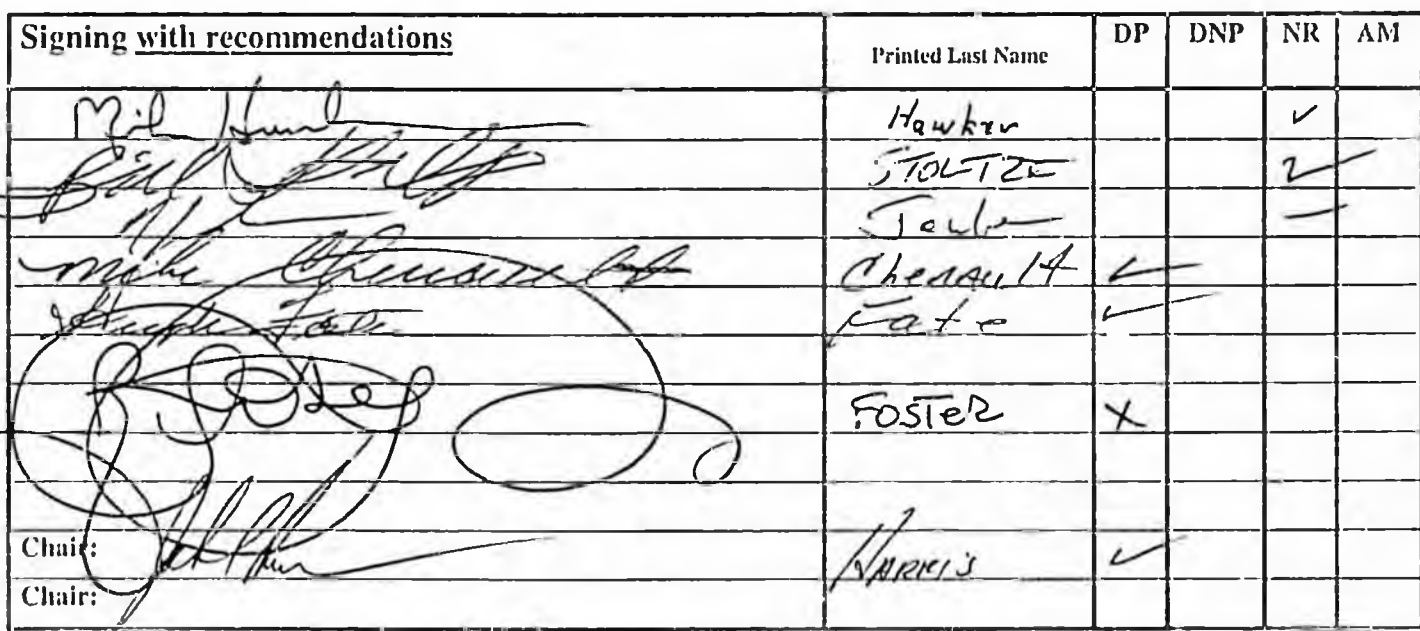 Signing with recommendations Printed Last Name DP DNP NR AM
Hawker ✓
STOLTZE ✓
Mike Chenault Chenault ✓
Fate ✓
Foster FOSTER X
Chair: HARRIS ✓
Chair: